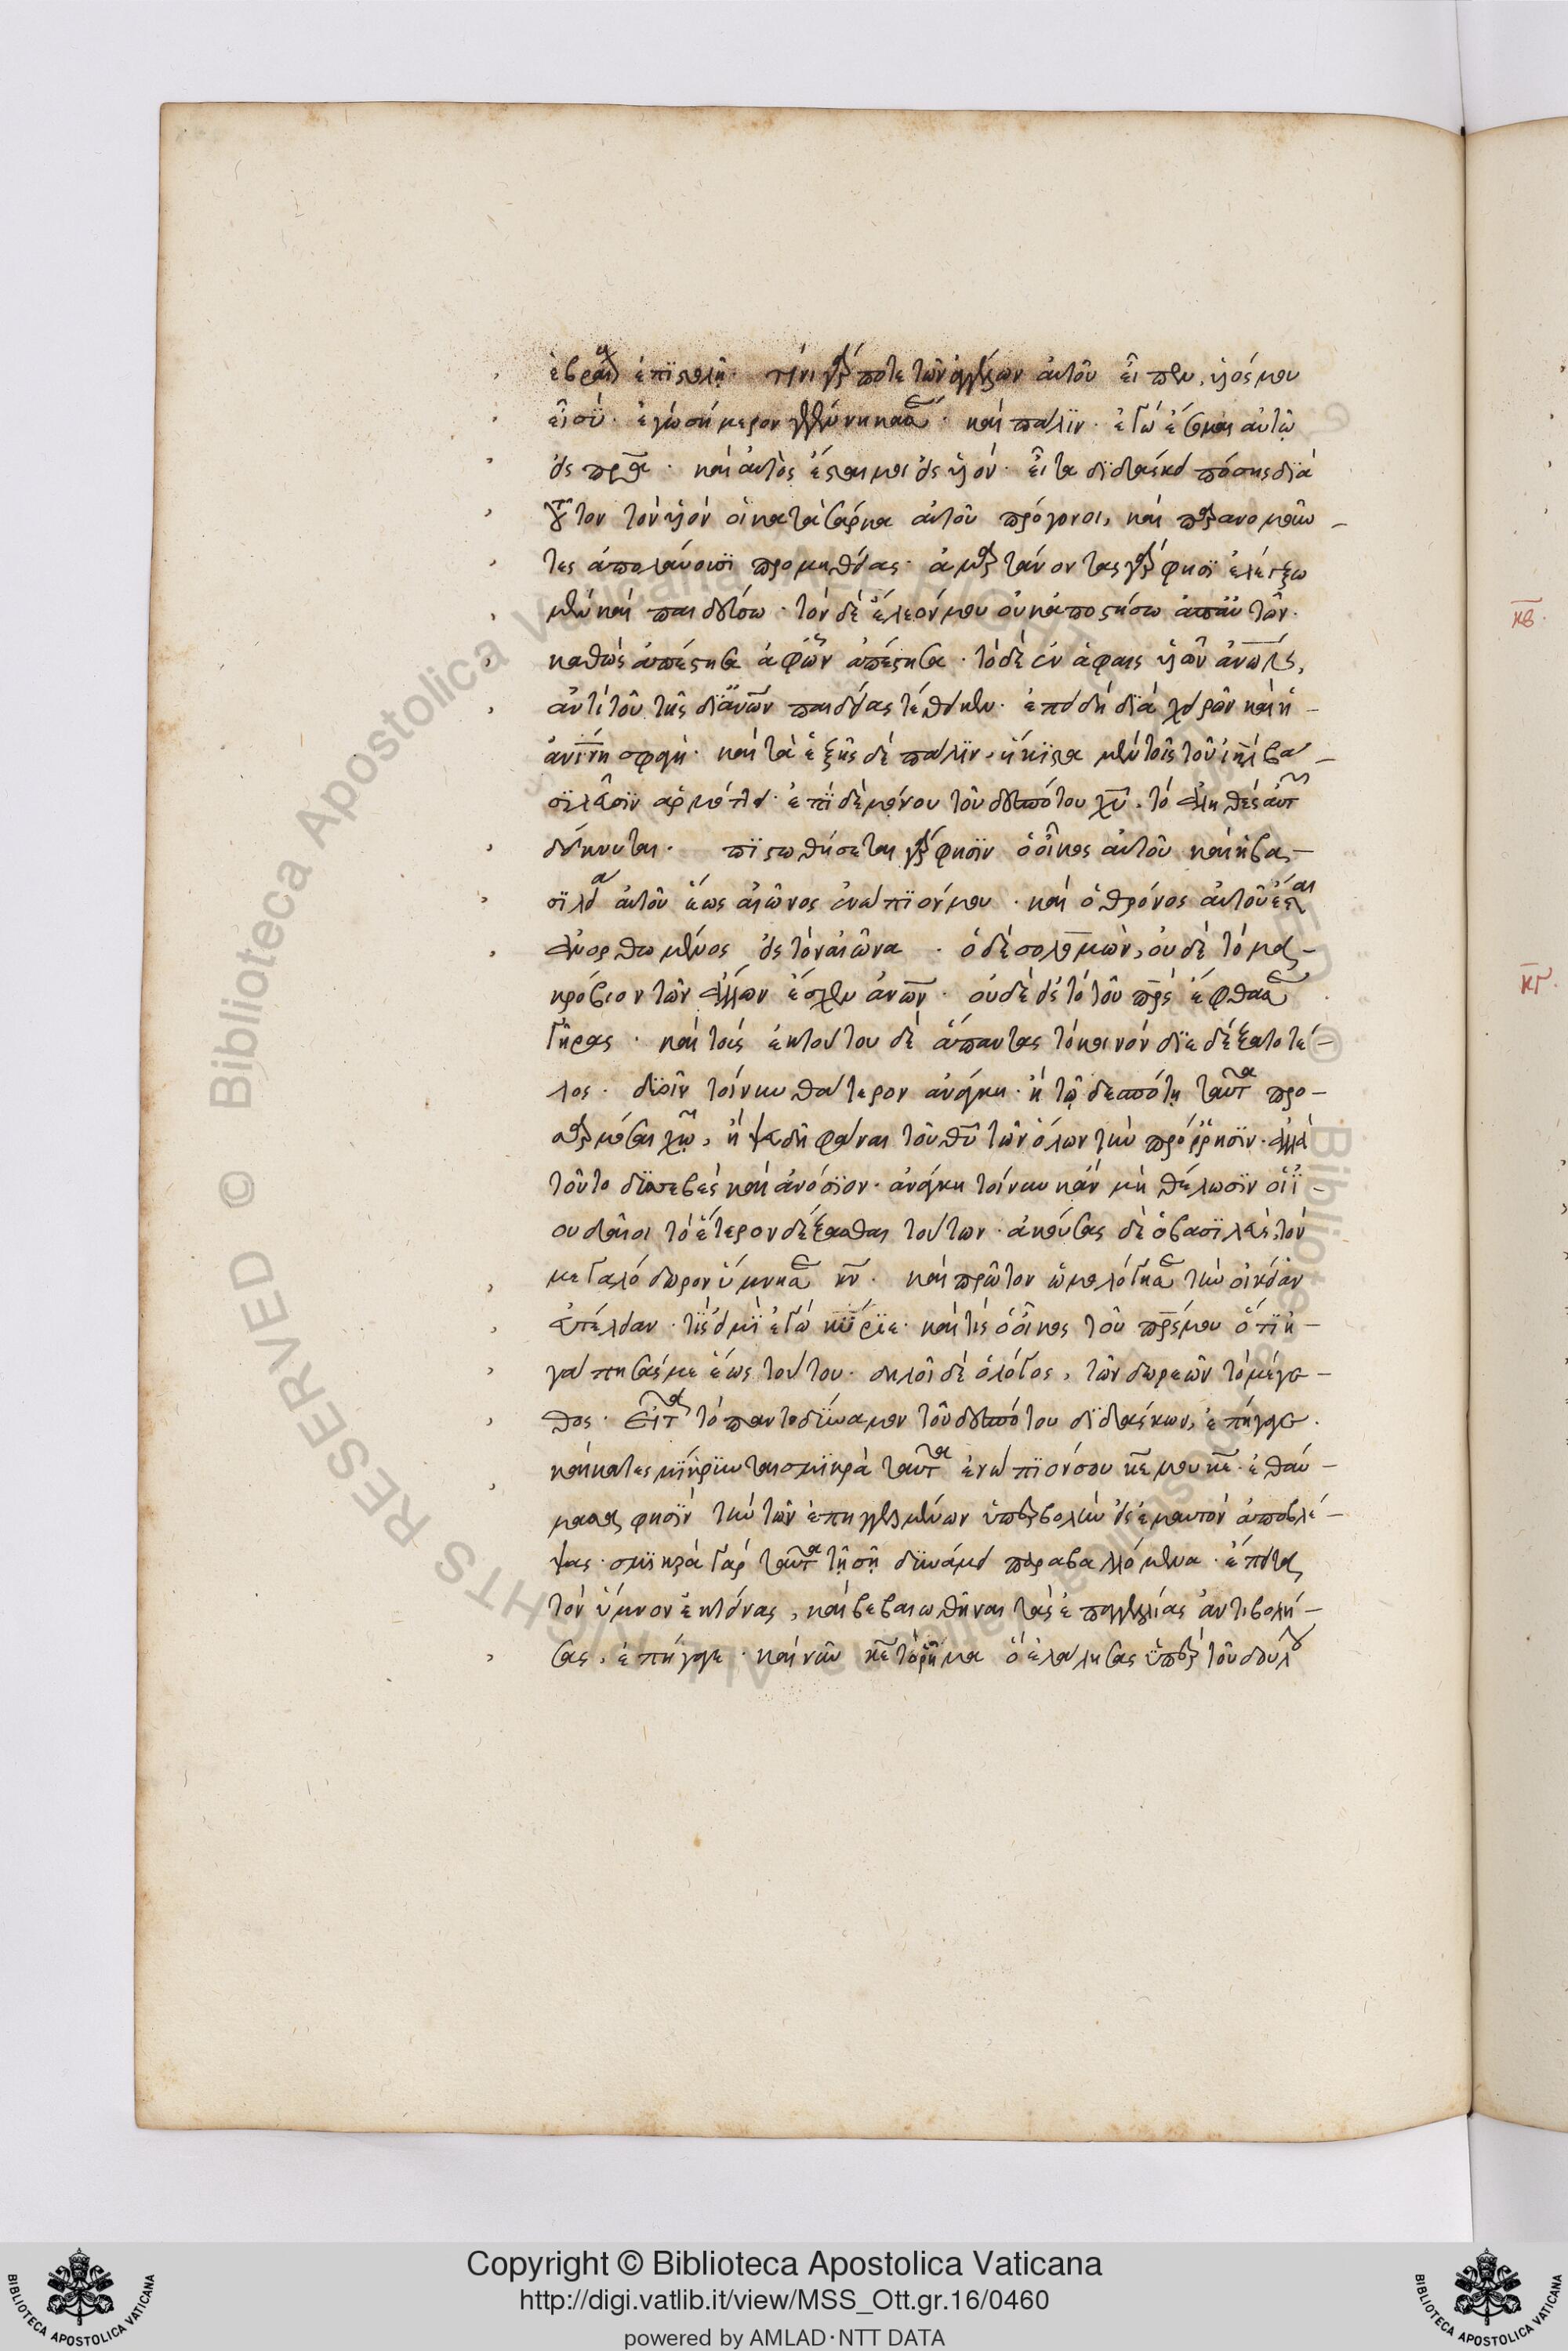 ἑβραί ἐπιστολῇ· τίνι γάρ ποτε τῶν ἀγγέλων αὐτοῦ εἶπεν, υἱός μου
εἶ σύ· ἐγὼ σήμερον γεγέννηκά σε· καὶ πάλιν· ἐγὼ ἔσομαι αὐτῷ
εἰς πρα· καὶ αὐτὸς ἔσται μοι εἰς υἱόν· εἶτα διδάσκει πόσης διὰ
τοῦτον τὸν υἱὸν οἱ κατὰ σάρκα αὐτοῦ πρόγονοι, καὶ παρανομοῦν-
τες ἀπολαύουσι προμηθείας· ἁμαρτάνοντας γάρ φησι ἐλέγξω
μὲν καὶ παιδεύσω· τὸν δὲ ἔλεόν μου οὐκ ἀποστήσω ἀπ' αὐτῶν·
καθὼς ἀπέστησα ἀφ' ὧν ἀπέστησα· τὸ δὲ ἐν ἁφαῖς υἱῶν ἀνων,
ἀντὶ τοῦ τῆς δι' ἀνων παιδείας τέθεικεν· ἐπειδὴ διὰ χειρῶν καὶ ἡ
ἀνινη σφαγή· καὶ τὰ ἑξῆς δὲ πάλιν, ἥκιστα μὲν τοῖς τοῦ ιηλ βα-
σιλεῦσιν ἁρμόττει· ἐπὶ δὲ μόνου τοῦ δεσπότου χυ, τὸ ἀληθὲς αὐτ
δείκνυται· πιστωθήσεται γάρ φησιν ὁ οἶκος αὐτοῦ καὶ ἡ βα-
σιλεία αὐτοῦ ἕως αἰῶνος ἐνώπιόν μου· καὶ ὁ θρόνος αὐτοῦ ἔσται
ἀνωρθωμένος εἰς τὸν αἰῶνα· ὁ δὲ σολομών, οὐδὲ τὸ μα-
κρόβιον τῶν ἄλλων ἔσχεν ἀνων· οὐδὲ εἰς τὸ τοῦ πρς ἔφθασε
γῆρας· καὶ τοὺς ἐκ τούτου δὲ ἅπαντας τὸ κοινὸν διεδέξατο τέ-
λος· δυοῖν τοίνυν θάτερον ἀνάγκη· ἢ τῷ δεσπότῃ ταῦτα προ-
σαρμόσαι χω, ἢ ψευδῆ φάναι τοῦ θυ τῶν ὅλων τὴν πρόρρησιν· ἀλλὰ
τοῦτο δυσσεβὲς καὶ ἀνόσιον· ἀνάγκη τοίνυν κἂν μὴ θέλωσιν οἱ ἰ-
ουδαῖοι τὸ ἕτερον δέξασθαι τούτων· ἀκούσας δὲ ὁ βασιλεύς, τὸν
μεγαλόδωρον ὕμνησε κν· καὶ πρῶτον ὡμολόγησε τὴν οἰκείαν
εὐτέλειαν· τίς εἰμι ἐγὼ κύριε· καὶ τίς ὁ οἶκος τοῦ πρς μου ὅτι ἠ-
γάπησάς με ἕως τούτου· δηλοῖ δὲ ὁ λόγος, τῶν δωρεῶν τὸ μέγε-
θος· εἶτα τὸ παντοδύναμον τοῦ δεσπότου διδάσκων, ἐπήγαγε·
καὶ κατεσμικρύνται σμικρὰ ταῦτα ἐνώπιόν σου κε μου κε· ἐθαύ-
μασας φησὶν τὴν τῶν ἐπηγγελμένων ὑπερβολὴν εἰς ἐμαυτὸν ἀποβλέ-
ψας· σμικρὰ γὰρ ταῦτα τῇ σῇ δυνάμει παραβαλλόμενα· ἔπειτα
τὸν ὕμνον ἐκτείνας, καὶ βεβαιωθῆναι τὰς ἐπαγγελίας ἀντιβολή-
σας, ἐπήγαγε· καὶ νῦν κε τὸ ῥῆμα ὃ ἐλάλησας ὑπὲρ τοῦ δούλου
κβ·
κγ·
Copyright © Biblioteca Apostolica Vaticana
http://digi.vatlib.it/view/MSS_Ott.gr.16/0460
powered by AMLAD·NTT DATA